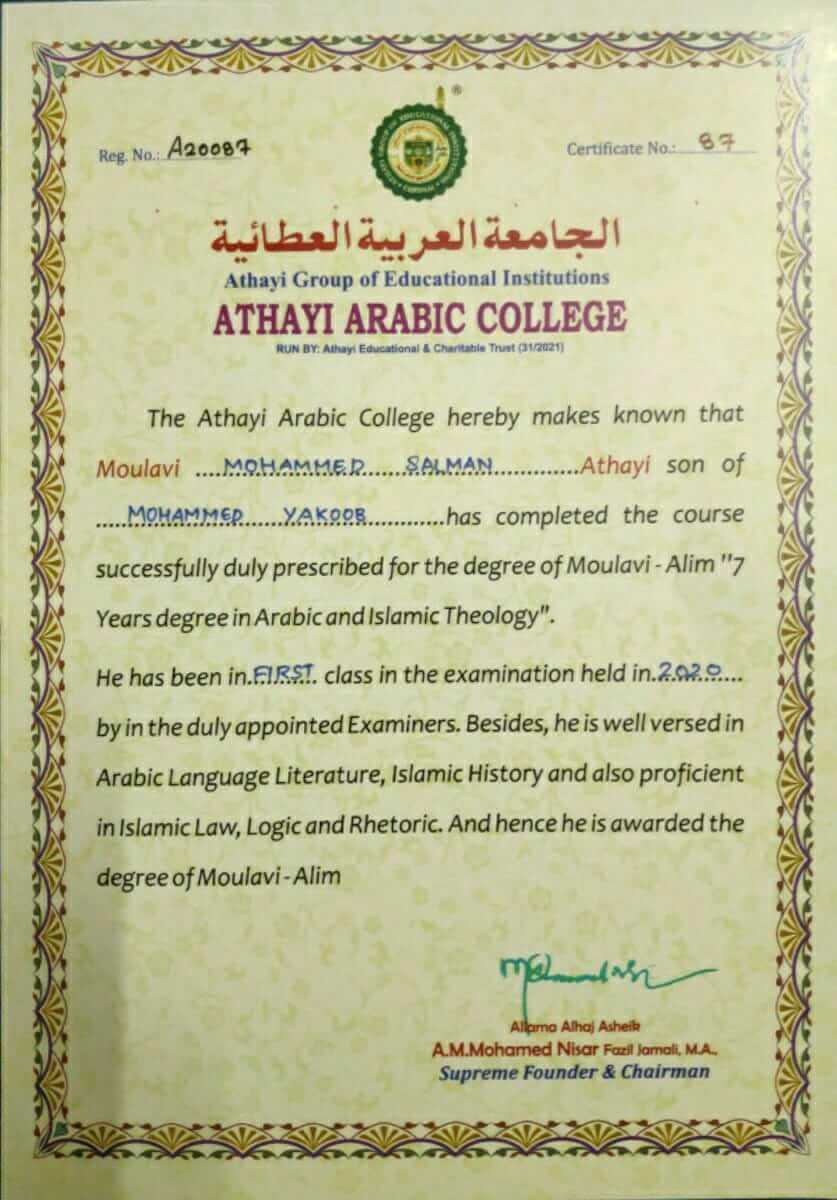 ®
Reg. No.: A20087
Certificate No.: 87
الجامعة العربية العطائية
Athayi Group of Educational Institutions
ATHAYI ARABIC COLLEGE
RUN BY: Athayi Educational & Charitable Trust (31/2021)
The Athayi Arabic College hereby makes known that
Moulavi ....MOHAMMED......SALMAN.............Athayi son of
.....MOHAMMED......YAKOOB............has completed the course
successfully duly prescribed for the degree of Moulavi - Alim "7
Years degree in Arabic and Islamic Theology".
He has been in.FIRST. class in the examination held in.2020....
by in the duly appointed Examiners. Besides, he is well versed in
Arabic Language Literature, Islamic History and also proficient
in Islamic Law, Logic and Rhetoric. And hence he is awarded the
degree of Moulavi - Alim
Allama Alhaj Asheik
A.M.Mohamed Nisar Fazil Jamali, M.A.,
Supreme Founder & Chairman